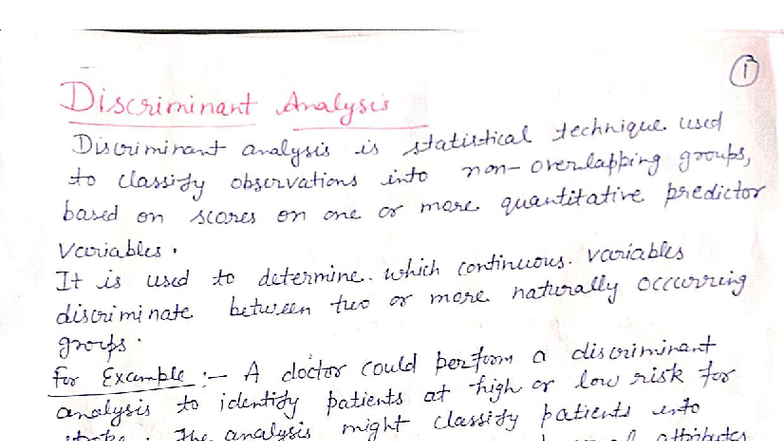 1
Discriminant Analysis
Discriminant analysis is statistical technique used
to classify observations into non-overlapping groups,
based on scores on one or more quantitative predictor
variables.
It is used to determine which continuous variables
discriminate between two or more naturally occurring
groups.
For Example :- A doctor could perform a discriminant
analysis to identify patients at high or low risk for
stroke. The analysis might classify patients into
attributes